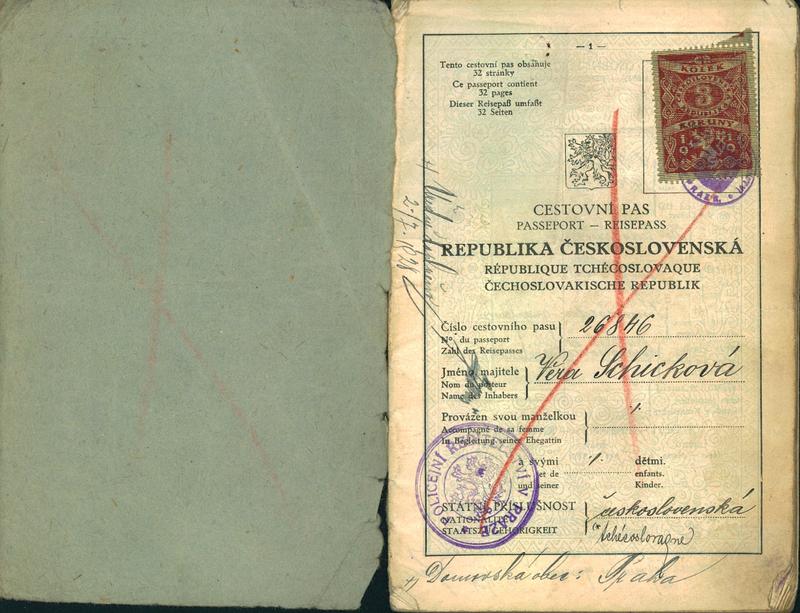 — 1 —
Tento cestovní pas obsahuje
32 stránky
Ce passeport contient
32 pages
Dieser Reisepaß umfaßt
32 Seiten
KOLEK
3
KORUNY
CESTOVNÍ PAS
PASSEPORT — REISEPASS
REPUBLIKA ČESKOSLOVENSKÁ
RÉPUBLIQUE TCHÉCOSLOVAQUE
ČECHOSLOVAKISCHE REPUBLIK
Číslo cestovního pasu
26846
No du passeport
Zahl des Reisepasses
Jméno majitele
Věra Schicková
Nom du porteur
Name des Inhabers
Provázen svou manželkou
Accompagné de sa femme
In Begleitung seiner Ehegattin
a svými dětmi.
et de enfants.
und seiner Kinder.
STÁTNÍ PŘÍSLUŠNOST
československá
NATIONALITÉ
tchécoslovaque
STAATSANGEHÖRIGKEIT
POLICEJNÍ ŘEDITELSTVÍ V PRAZE
Domovská obec: Praha